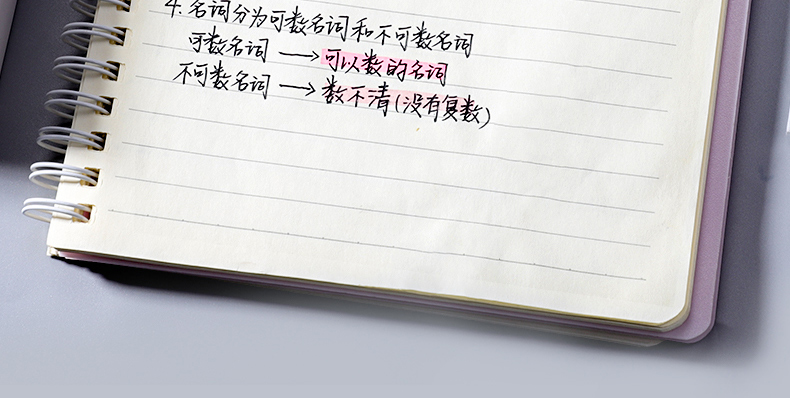 4. 名词分为可数名词和不可数名词
可数名词 → 可以数的名词
不可数名词 → 数不清(没有复数)